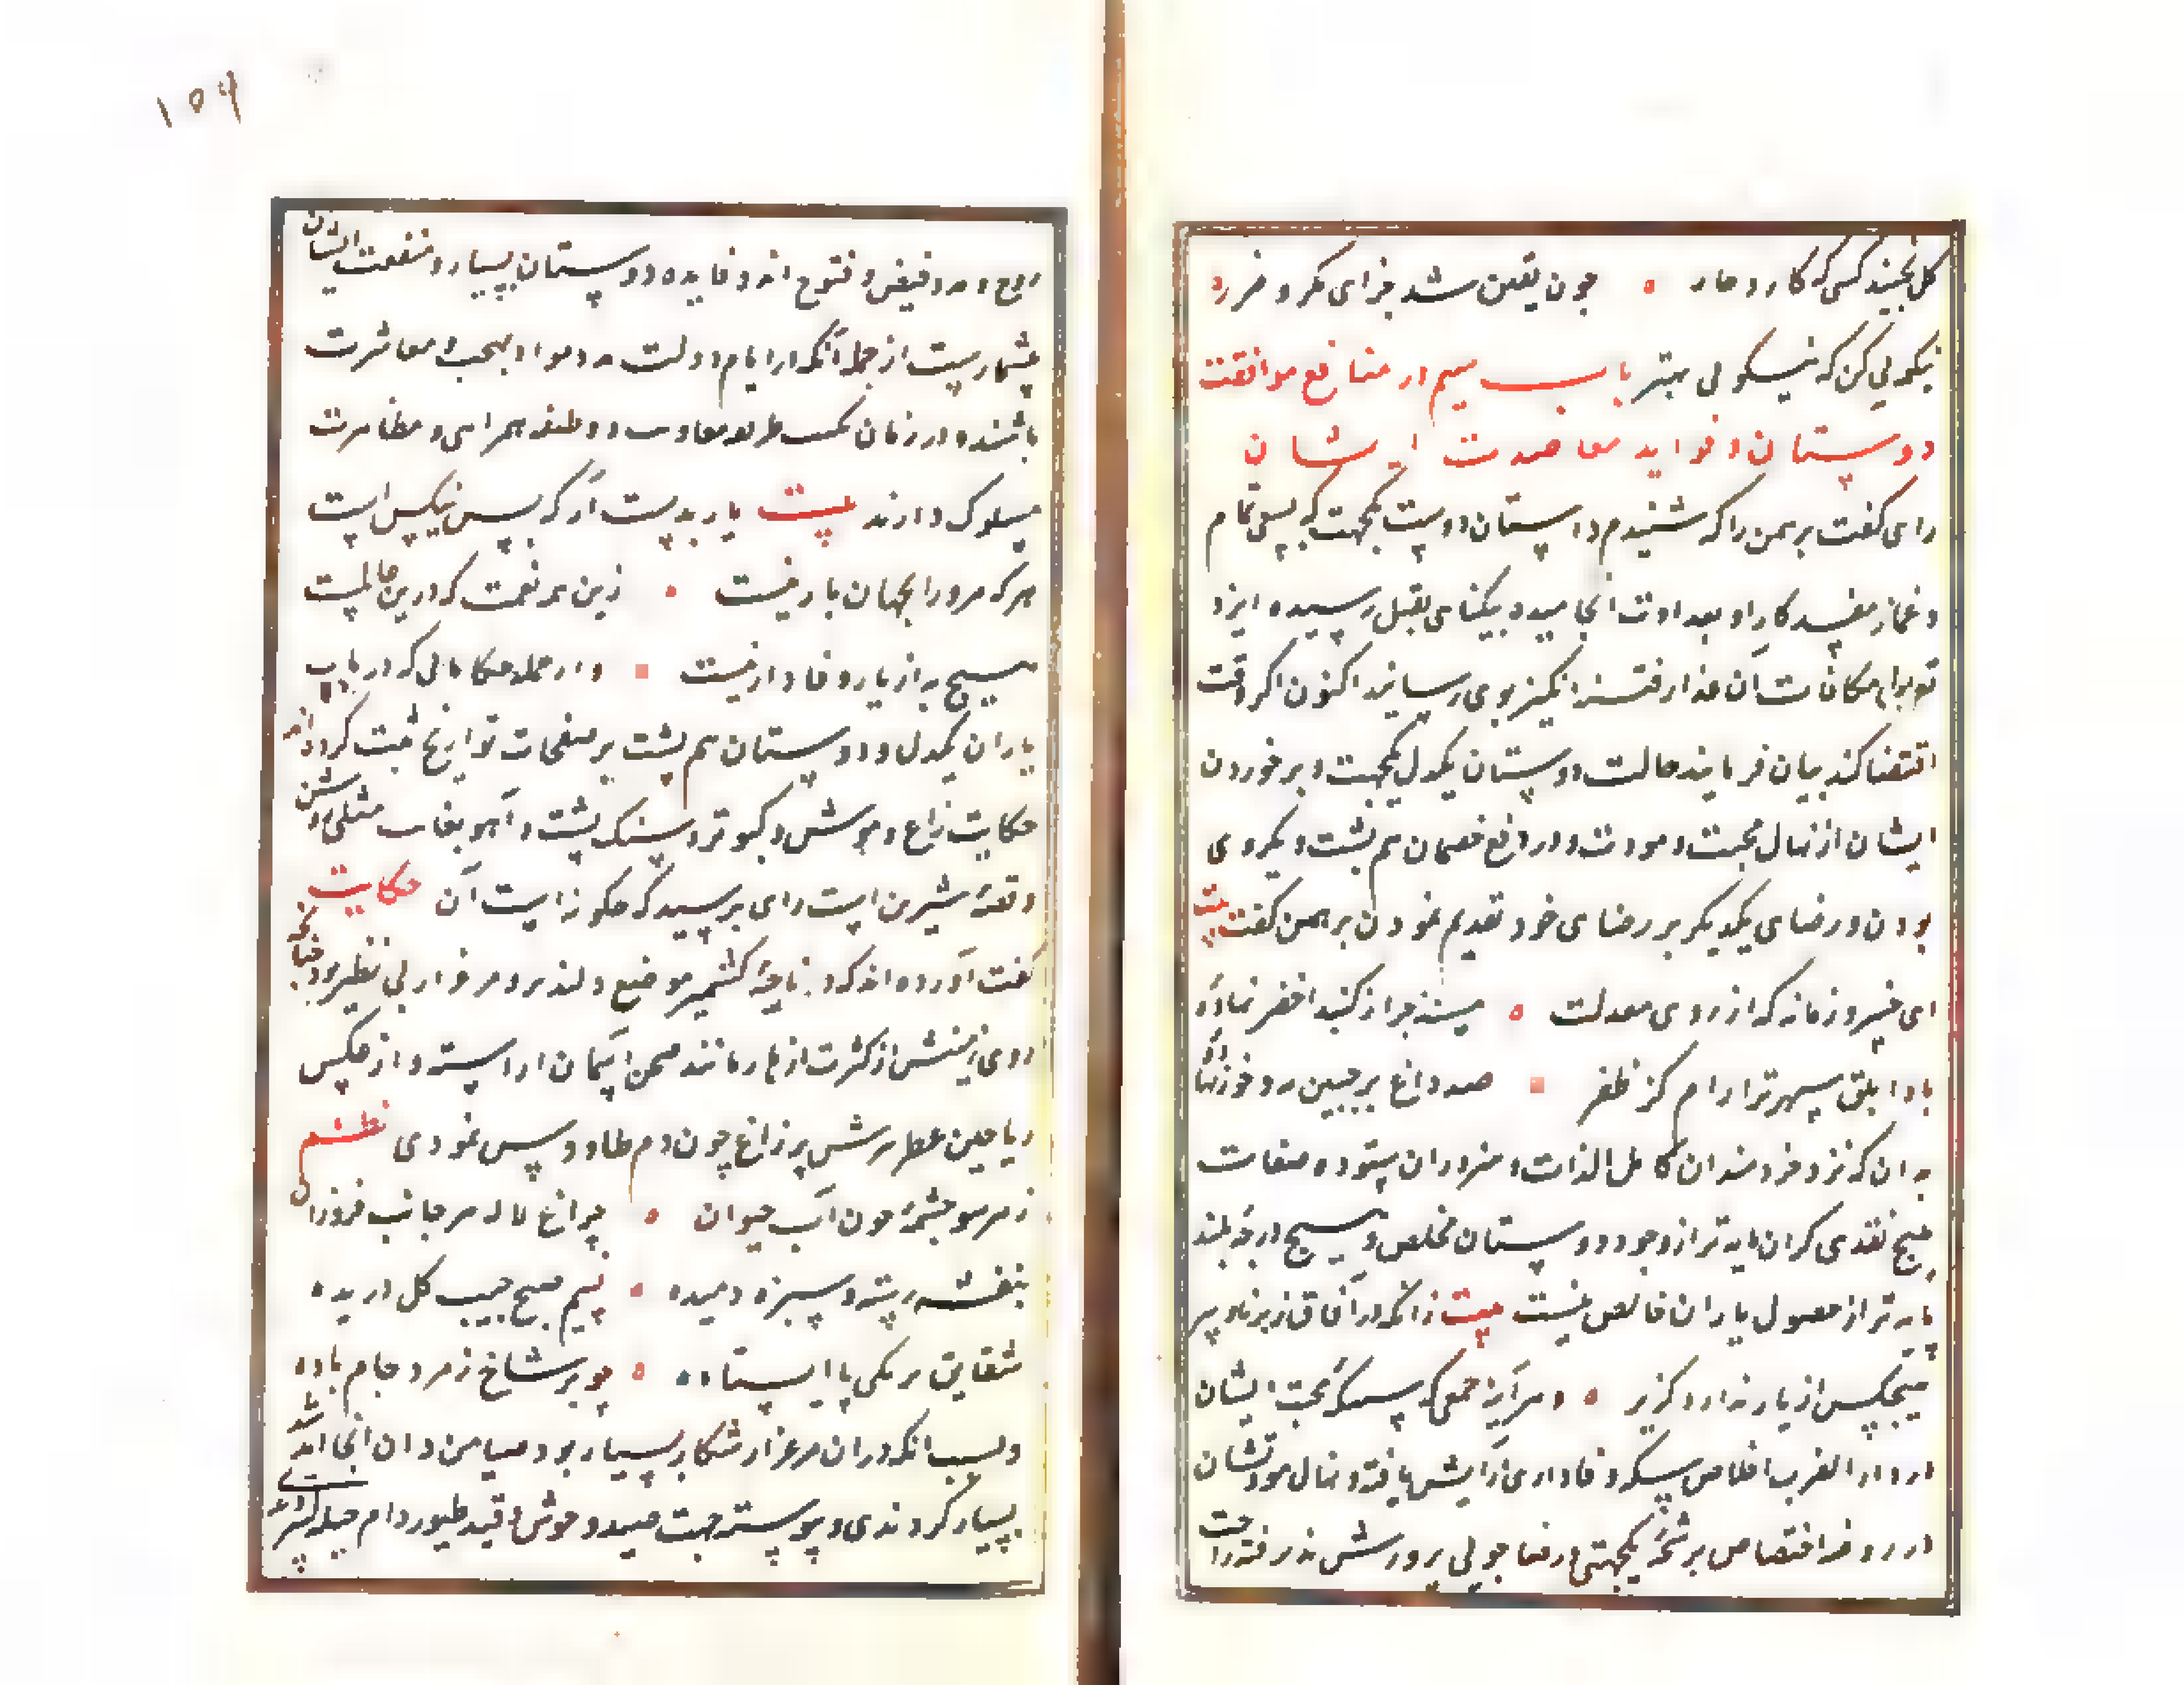 گل نچیند کسی که کارد خار ه چون یقین شد جزای مکر و ضرر
نیکویی کن که نیکویی بهتر باب سیم در منافع موافقت
دوستان و فواید معاضدت ایشان
رای گفت برهمن را که شنیدم داستان دو دوست یکجهت که بسعی نمام
و غماز مفسد کار او بعداوت انجامیده بیگناهی بقتل رسیده ایزد
تعالی مکافات آن غدار فتنه انگیز بوی رسانید اکنون اگر وقت
اقتضا کند بیان فرمایند حالت دوستان یکدل یکجهت و برخوردن
ایشان از نهال محبت و مودت و در دفع خصمان هم پشت و یکروی
بودن و رضای یکدیگر بر رضای خود تقدیم نمودن برهمن گفت بیت
ای خسرو زمانه که از روی معدلت ه مسند جز از گنبد اخضر نهاده
بادا ابلق سپهر ترا رام کز ظفر صد داغ بر جبین مه و خور نهاده
بدان که نزد خردمندان کامل الذات و هنروران ستوده صفات
هیچ نقدی گران مایه تر از وجود دوستان مخلص و هیچ درجه بلند
پایه تر از حصول یاران خالص نیست بیت زانکه در آفاق ز برنا و پیر
هیچکس از یار ندارد گزیر ه و هرآینه جمعی که سکه محبت ایشان
در دار الضرب اخلاص بسکه وفاداری آرایش یافته و نهال مودتشان
در روضه اختصاص برشحه یکجهتی و رضا جویی پرورش پذرفته راحت
روح و مدد فیض و فتوح اند و فایده دوستان بسیار و منفعت ایشان
بیشمارست از جمله آنکه در ایام دولت مدد مواد صحبت و معاشرت
باشند و در زمان نکبت طریق معاونت و وظیفه همراهی و مظاهرت
مسلوک دارند بیت یار بدست آر که بس نیکس است
هر که مرو را بجهان یار نیست زین همه نعمت که درین عالمست
هیچ به از یار وفادار نیست و از جمله حکایاتی که در باب
یاران یکدل و دوستان هم پشت بر صفحات تواریخ ثبت کرده اند
حکایت زاغ و موش و کبوتر و سنگ پشت و آهو بغایت مثلی روشن
و قصه شیرین است رای پرسید که چگونه است آن حکایت
گفت آورده اند که در ناحیه کشمیر موضعی دلپذیر و مرغزار بی نظیر بود چنانچه
روی زمینش از کثرت ازهار مانند صحن آسمان آراسته و از عکس
ریاحین عطرش پر زاغ چون دم طاووس نمودی نظم
ز هر سو چشمه چون آب حیوان ه چراغ لاله هر جانب فروزان
بنفشه رسته و سبزه دمیده نسیم صبح جیب گل دریده
شقایق بر یکی پا ایستاده ه چو بر شاخ زمرد جام باده
و بسبب انکه در ان مرغزار شکار بسیار بود صیادان انجا آمد شد
بسیار کردندی و پیوسته جهت صید وحوش و قید طیور دام حیله گستردندی
۱۵۶